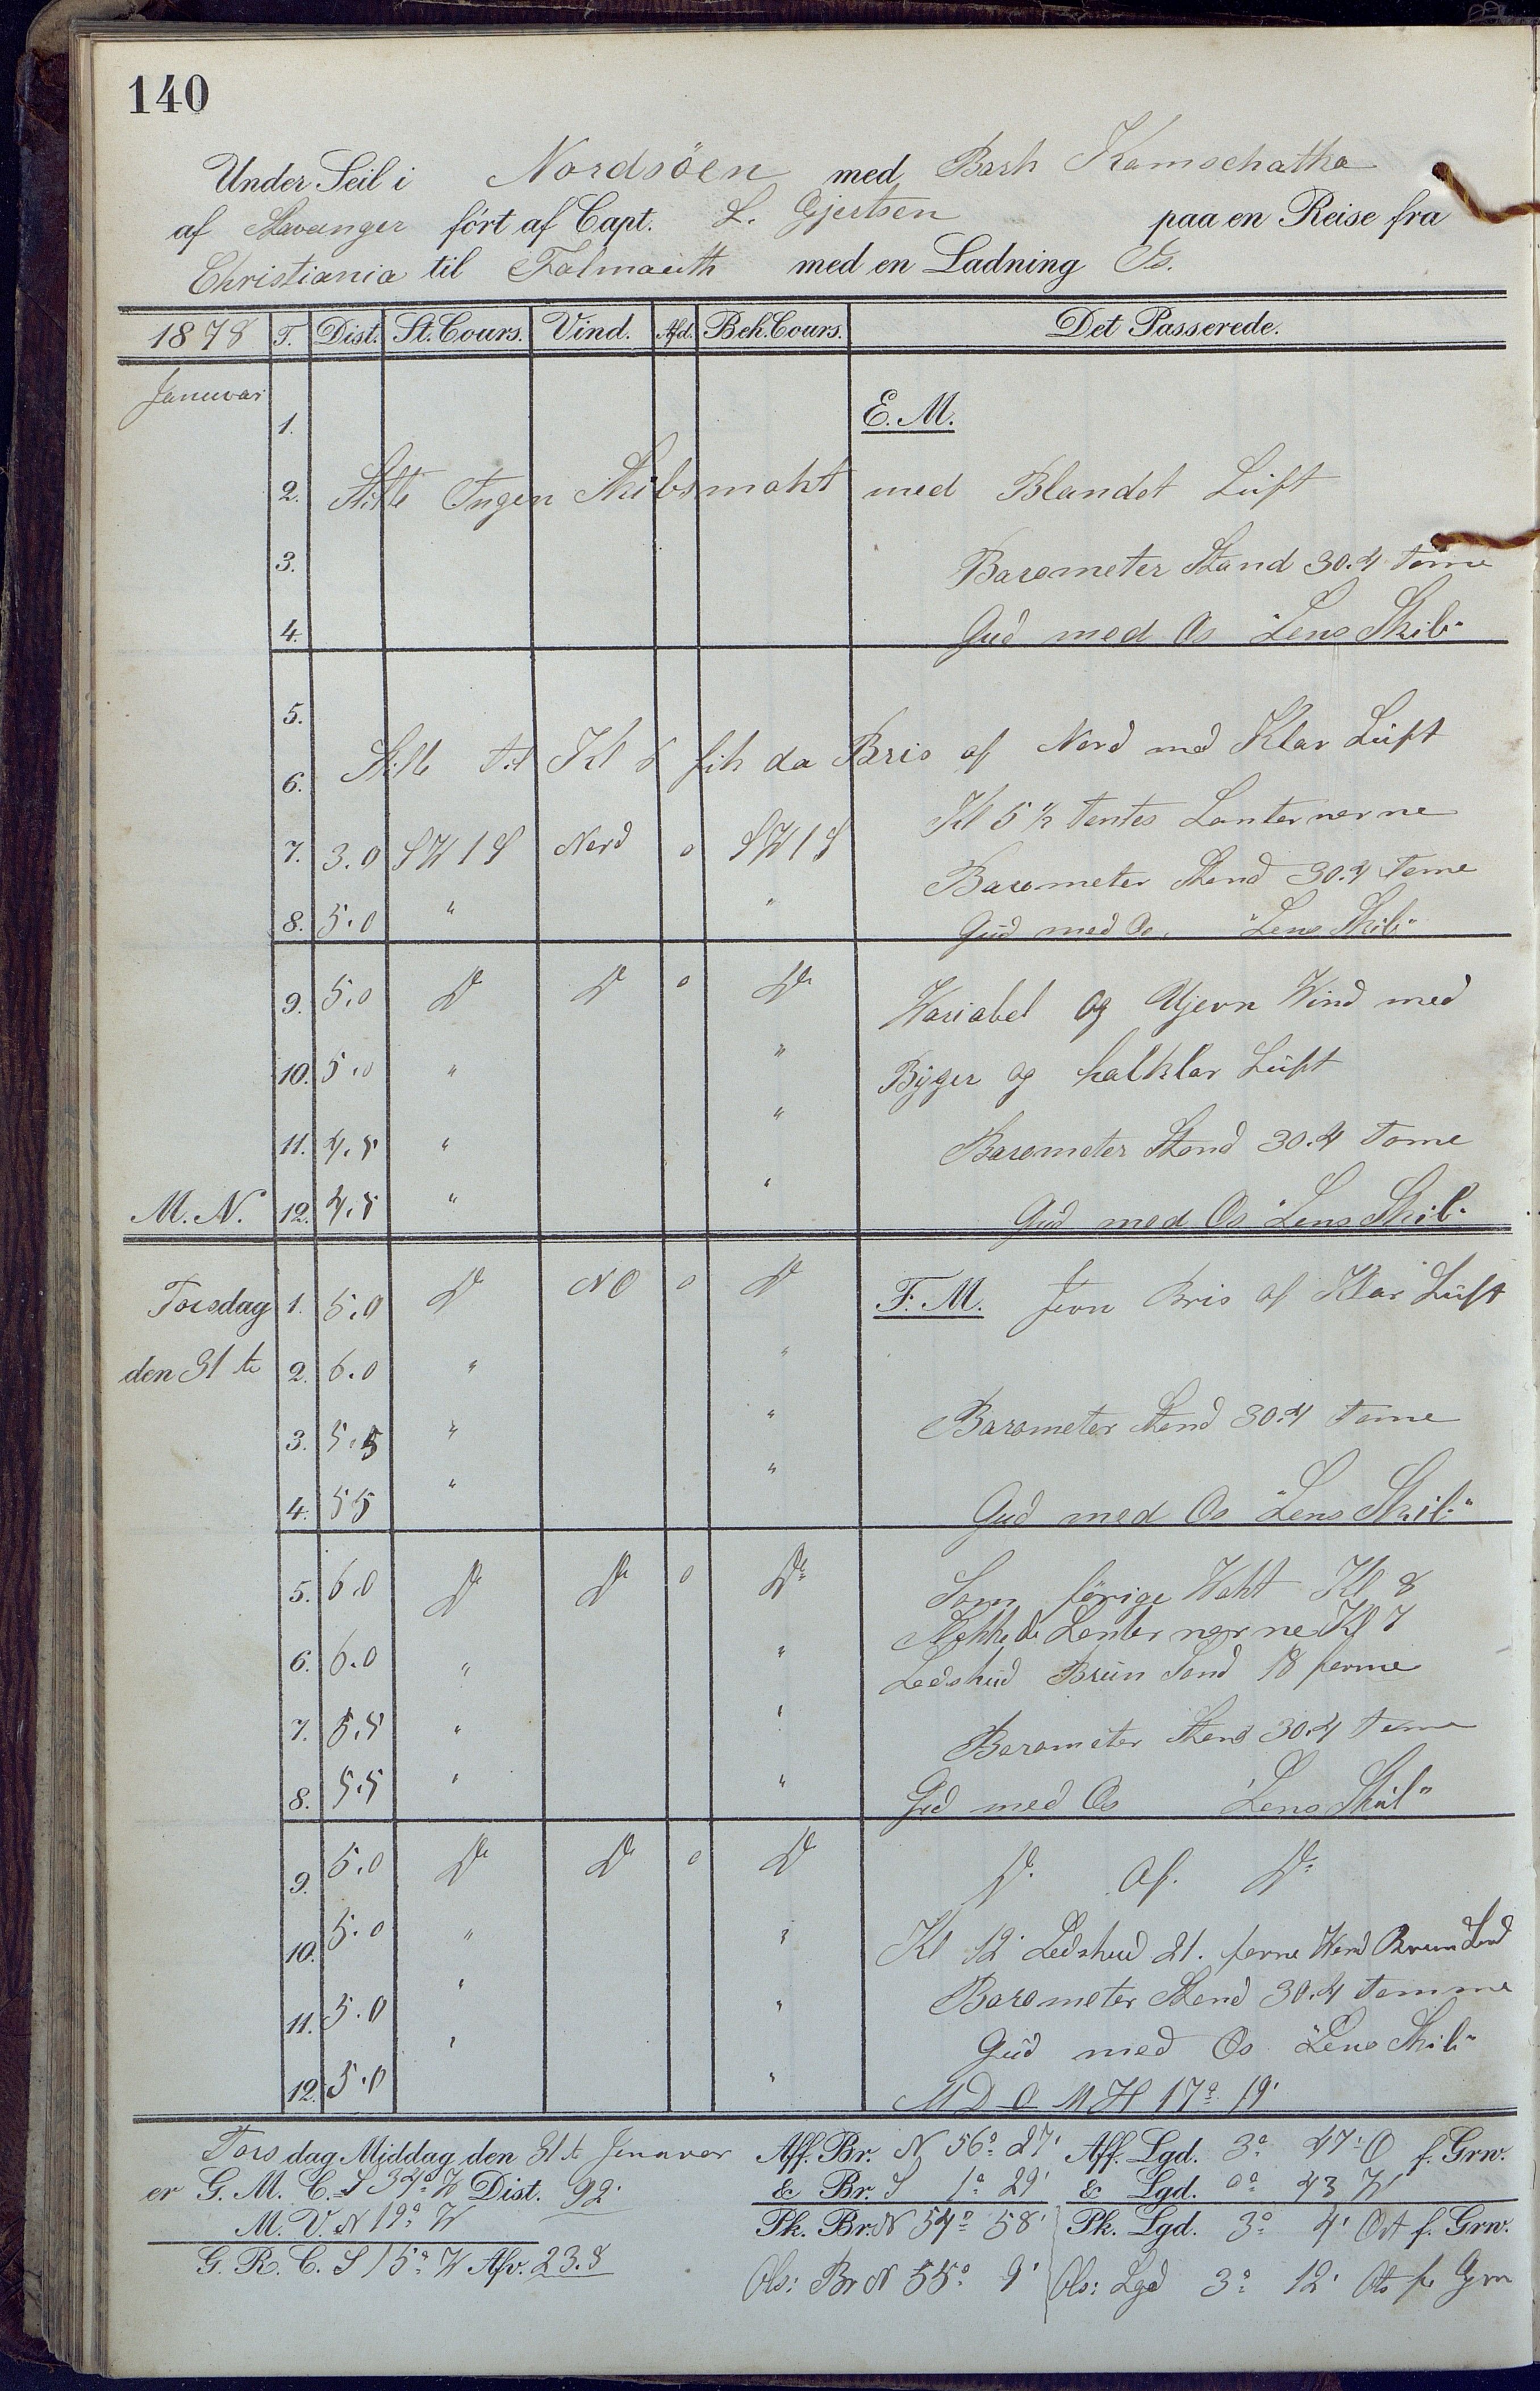 140
Under Seil i Nordsöen med Bark Kamschatka
af Stavanger fört af Capt. L. Gjertsen paa en Reise fra
Christiania til Falmouth med en Ladning Is.
1878 T. Dist. St. Cours. Vind. Afd. Beh. Cours. Det Passerede.
Januar
1. E. M.
2. Stille Ingen Skibsmakt med Blandet Luft
3. Barometer Stand 30.4 Tome
4. Gud med Os "Lens Skib"
5.
6. Stille til Kl 6 fik da Bris af Nord med Klar Luft
Kl 5 1/2 tentes Lanternerne
7. 3.0 SW 1 S Nord 0 SW 1 S
Barometer Stand 30.4 Tome
8. 5.0 " "
Gud med Os. "Lens Skib"
9. 5.0 Do Do 0 Do Wariabel og Ujevn Wind med
10. 5.0 " " Byger og halklar Luft
11. 4.5 " " Barometer Stand 30.4 Tome
M. N. 12. 4.5 " " Gud med Os "Lens Skib"
Torsdag 1. 5.0 Do NO 0 Do F. M. Jevn Bris af Klar Luft
den 31 te 2. 6.0 " "
3. 5.5 " " Barometer Stand 30.4 Tome
4. 5 5 " " Gud med Os "Lens Skib"
5. 6.0 Do Do 0 Do Som forige Wakt Kl 8
Slukkede Lanternerne Kl 7
6. 6.0 " " Lodskud Brun Sand 18 favne
7. 5.5 " " Barometer Stand 30.4 Tome
8. 5.5 " " Gud med Os "Lens Skib"
9. 5.0 Do Do 0 Do Do. Af. Do
10. 5.0 " " Kl 12 Lodskud 21. favne Wand Brun Sand
11. 5.0 " " Barometer Stand 30.4 Tomme
Gud med Os "Lens Skib"
12. 5.0 " " M D O M H 17° 19'
Torsdag Middag den 31 te Januar Aff. Br. N 56° 27' Aff. Lgd. 3° 47' O f. Grw.
er G. M. C. S 34° W Dist. 92' & Br. S 1° 29' & Lgd. 0° 43 W
M. V. N 19° W Pk. Br. N 54° 58' Pk. Lgd. 3° 4' Ost f. Grw.
G. R. C. S 15° W Afv. 23.8
Obs: Br N 55° 9' Obs: Lgd 3° 12' Ost fr Grw